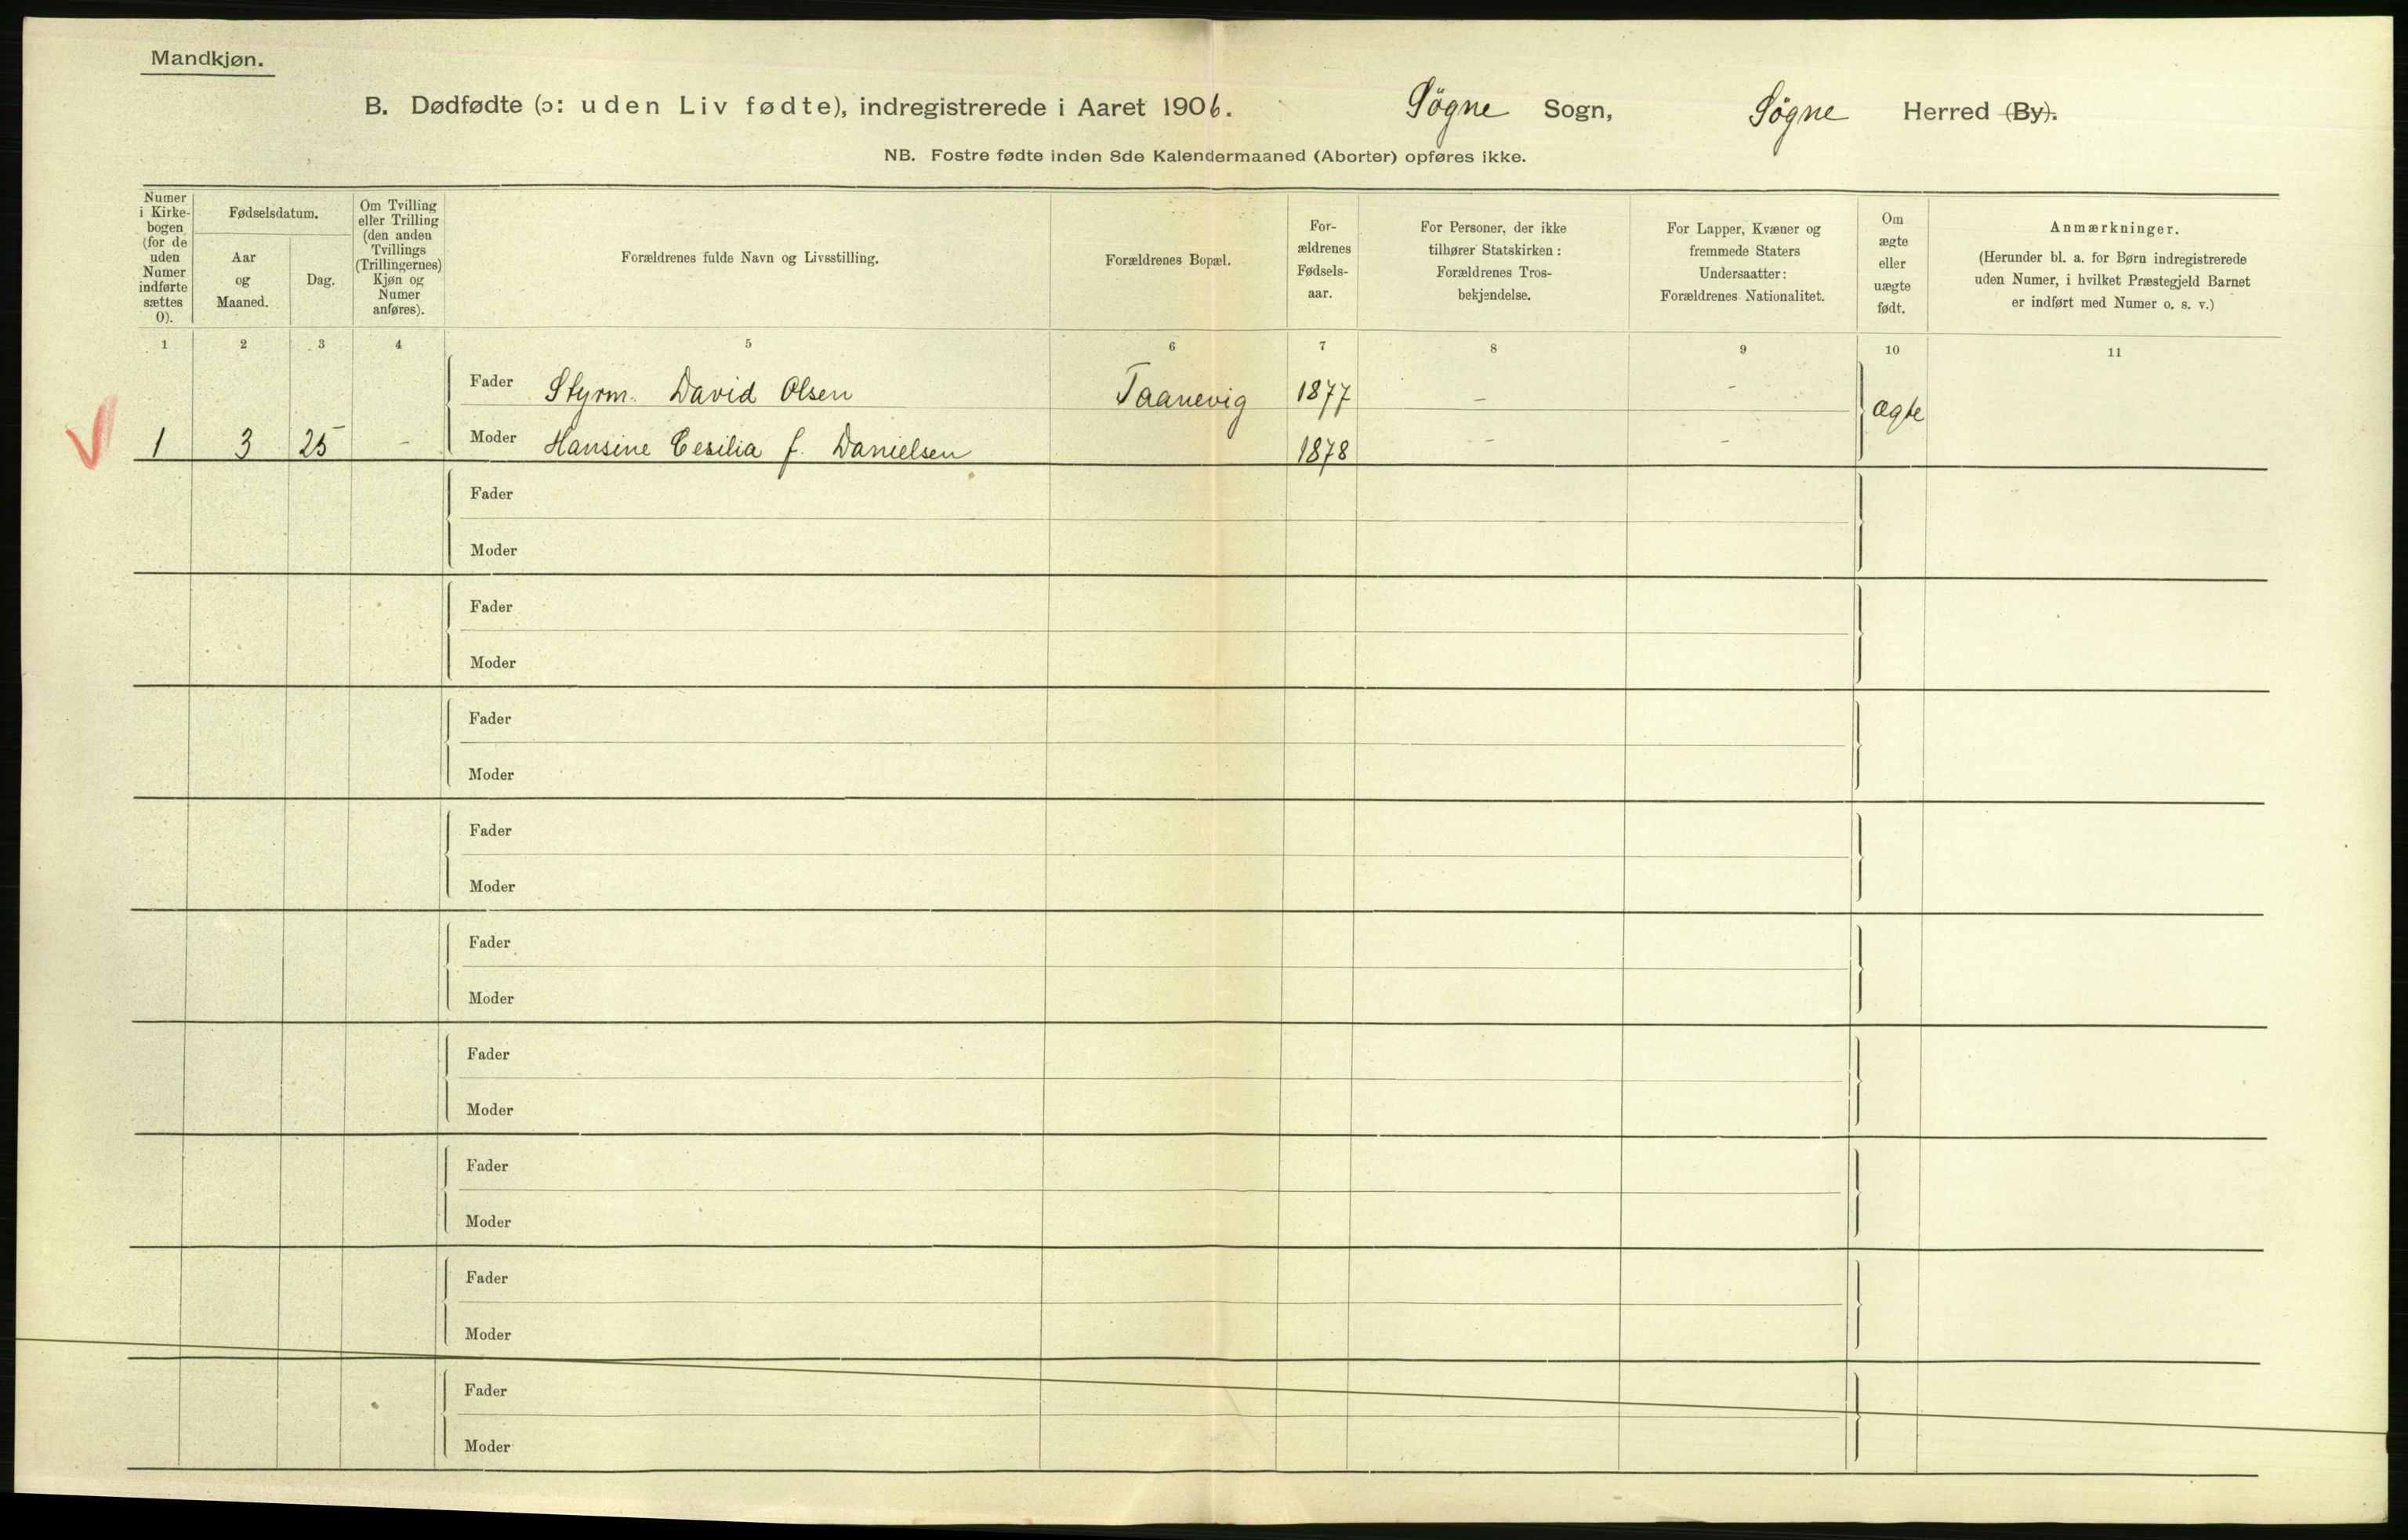 Mandkjøn.
B. Dødfødte (ɔ: uden Liv fødte), indregistrerede i Aaret 1906. Søgne Sogn, Søgne Herred (By).
NB. Fostre fødte inden 8de Kalendermaaned (Aborter) opføres ikke.
Numer
i Kirke-
bogen
(for de
uden
Numer
indførte
sættes
0).
Fødselsdatum.
Aar
og
Maaned.
Dag.
Om Tvilling
eller Trilling
(den anden
Tvillings
(Trillingernes)
Kjøn og
Numer
anføres).
Forældrenes fulde Navn og Livsstilling.
Forældrenes Bopæl.
For-
ældrenes
Fødsels-
aar.
For Personer, der ikke
tilhører Statskirken:
Forældrenes Tros-
bekjendelse.
For Lapper, Kvæner og
fremmede Staters
Undersaatter:
Forældrenes Nationalitet.
Om
ægte
eller
uægte
født.
Anmærkninger.
(Herunder bl. a. for Børn indregistrerede
uden Numer, i hvilket Præstegjeld Barnet
er indført med Numer o. s. v.)
1 2 3 4 5 6 7 8 9 10 11
Fader Styrm. David Olsen Taanevig 1877 - - ægte
1 3 25 - Moder Hansine Cesilia f. Danielsen 1878 - -
Fader
Moder
Fader
Moder
Fader
Moder
Fader
Moder
Fader
Moder
Fader
Moder
Fader
Moder
Fader
Moder
Fader
Moder